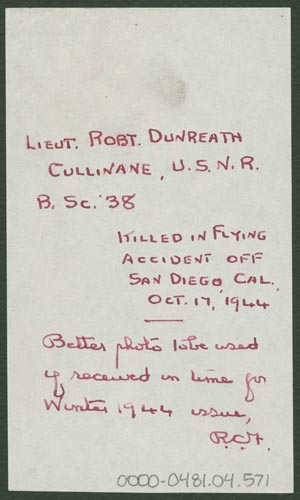 LIEUT. ROBT. DUNREATH
CULLINANE, U.S.N.R.
B. Sc. '38
KILLED IN FLYING
ACCIDENT OFF
SAN DIEGO, CAL.,
OCT. 17, 1944
Better photo to be used
if received in time for
Winter 1944 issue,
R.C.H.
0000-0481.04.571